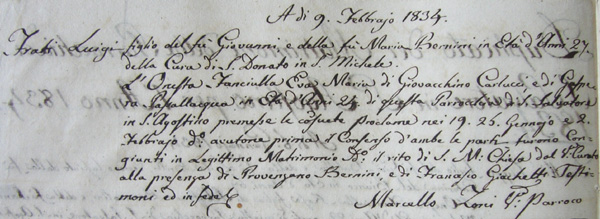 A di 9. Febbrajo 1834.
Frati Luigi figlio del fù Giovanni, e della fù Maria Bernini in Età d'Anni 27.
della Cura di S. Donato in S. Michele.
L'Onesta Fanciulla Eva Maria di Giovacchino Carlucci, e di Gaspera
Passallacqua in Età d'Anni 24. di questa Parrocchia di S. Salvatore
in S. Agostino premesse le consuete Proclame nei 19. 25. Gennajo e 2.
Febbrajo do. avutone prima il Consenso d'ambe le parti furono Con
giunti in Legittimo Matrimonio So. il rito di S. M. Chiesa dal Po. Curato
alla presenza di Provenzano Bernini, e di Giachetti Testi
moni ed in fede
Marcello Zoni Po. Parroco